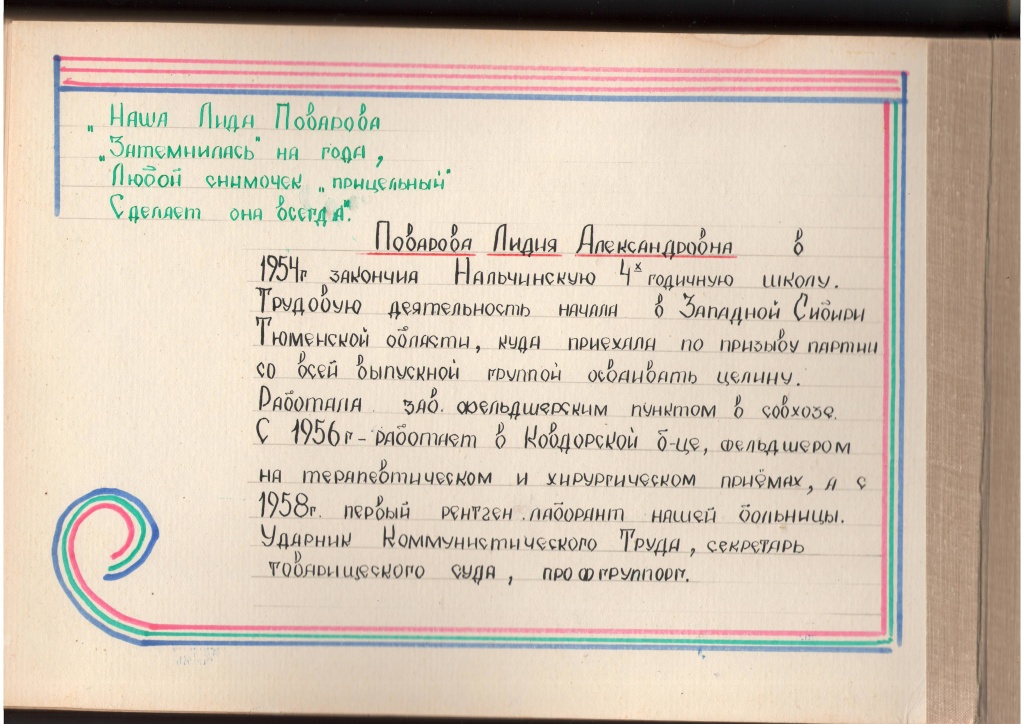 „Наша Лида Поварова
„Затемнилась" на года,
Любой снимочек „прицельный"
Сделает она всегда".
Поварова Лидия Александровна в
1954г закончил Нальчинскую 4х годичную школу.
Трудовую деятельность начала в Западной Сибири
Тюменской области, куда приехала по призыву партии
со всей выпускной группой осваивать целину.
Работала зав. фельдшерским пунктом в совхозе.
С 1956г - работает в Ковдорской б-це, фельдшером
на терапевтическом и хирургическом приёмах, а с
1958г. первый рентген.лаборант нашей больницы.
Ударник Коммунистического Труда, секретарь
товарищеского суда, профгруппорг.